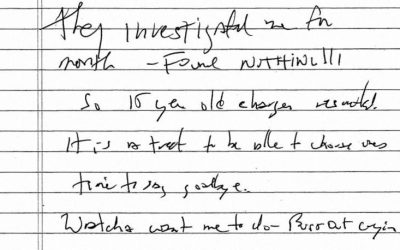 They investigated me for
month - Found NOTHING!!!
So 15 year old charges resulted.
It is a treat to be able to choose ones
time to say goodbye.
Watcha want me to do - Burst out cryin